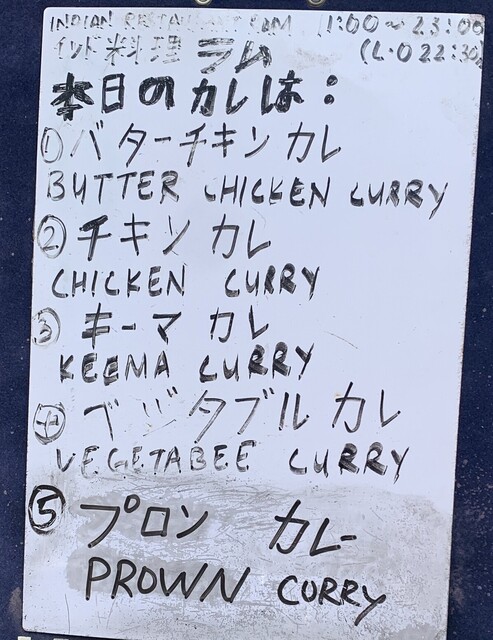 INDIAN RESTAURANT RAM 11:00~23:00
印度料理 ラム (L・O 22:30)
本日のカレは:
① バターチキン カレ
BUTTER CHICKEN CURRY
② チキン カレ
CHICKEN CURRY
③ キーマ カレ
KEEMA CURRY
④ ベジタブル カレ
VEGETABEE CURRY
⑤ プロン カレー
PROWN CORRY